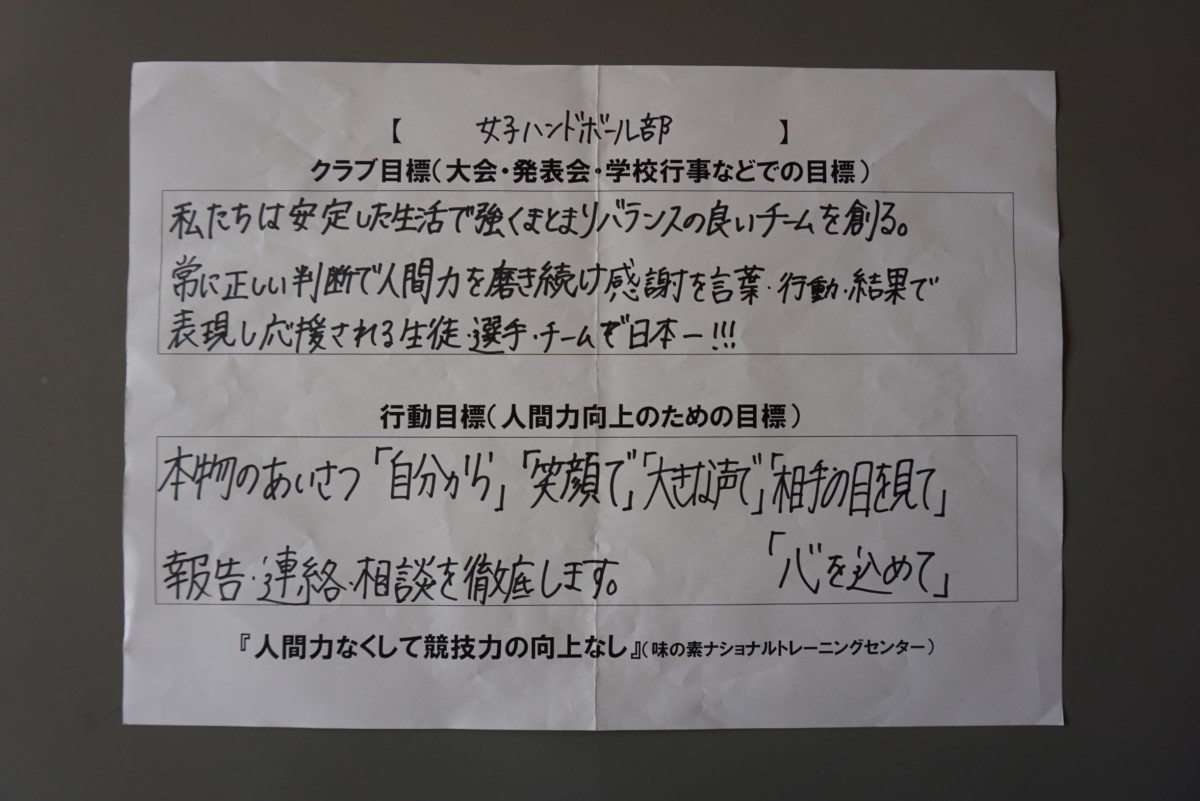 【 女子ハンドボール部 】
クラブ目標(大会・発表会・学校行事などでの目標)
私たちは安定した生活で強くまとまりバランスの良いチームを創る。
常に正しい判断で人間力を磨き続け感謝を言葉・行動・結果で
表現し応援される生徒・選手・チームで日本一!!!
行動目標(人間力向上のための目標)
本物のあいさつ「自分から」「笑顔で」「大きな声で」「相手の目を見て」
「心を込めて」
報告・連絡・相談を徹底します。
『人間力なくして競技力の向上なし』(味の素ナショナルトレーニングセンター)